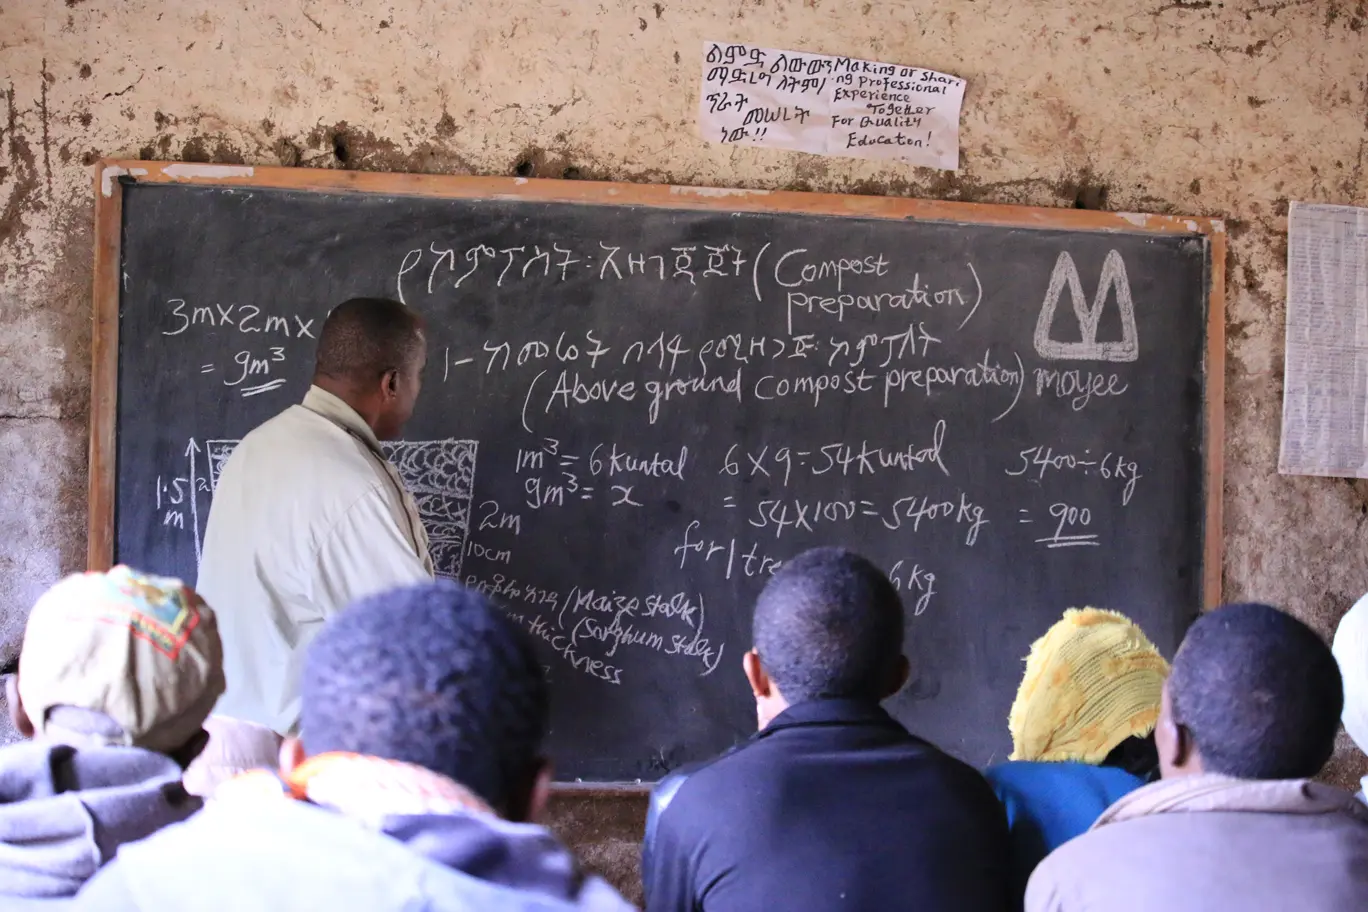 ልምድ ልውውጥ
ማድረግ ለትም/
ጥራት
መሠረት
ነው!!
Making or shari
ng professional
Experience
Together
For Quality
Education!
የኮምፖስት አዘገጃጀት (Compost
preparation)
3mx2mx
= 9m³
1- ከመሬት በላይ የሚዘጋጅ ኮምፖስት
(Above ground compost preparation)
moyee
1.5
m
2m
10cm
1m³ = 6 kuntal
9m³ = x
6 x 9 = 54 kuntal
= 54x100 = 5400kg
for 1
6kg
5400÷6kg
= 900
(Maize stalk)
(Sorghum stalk)
in thickness